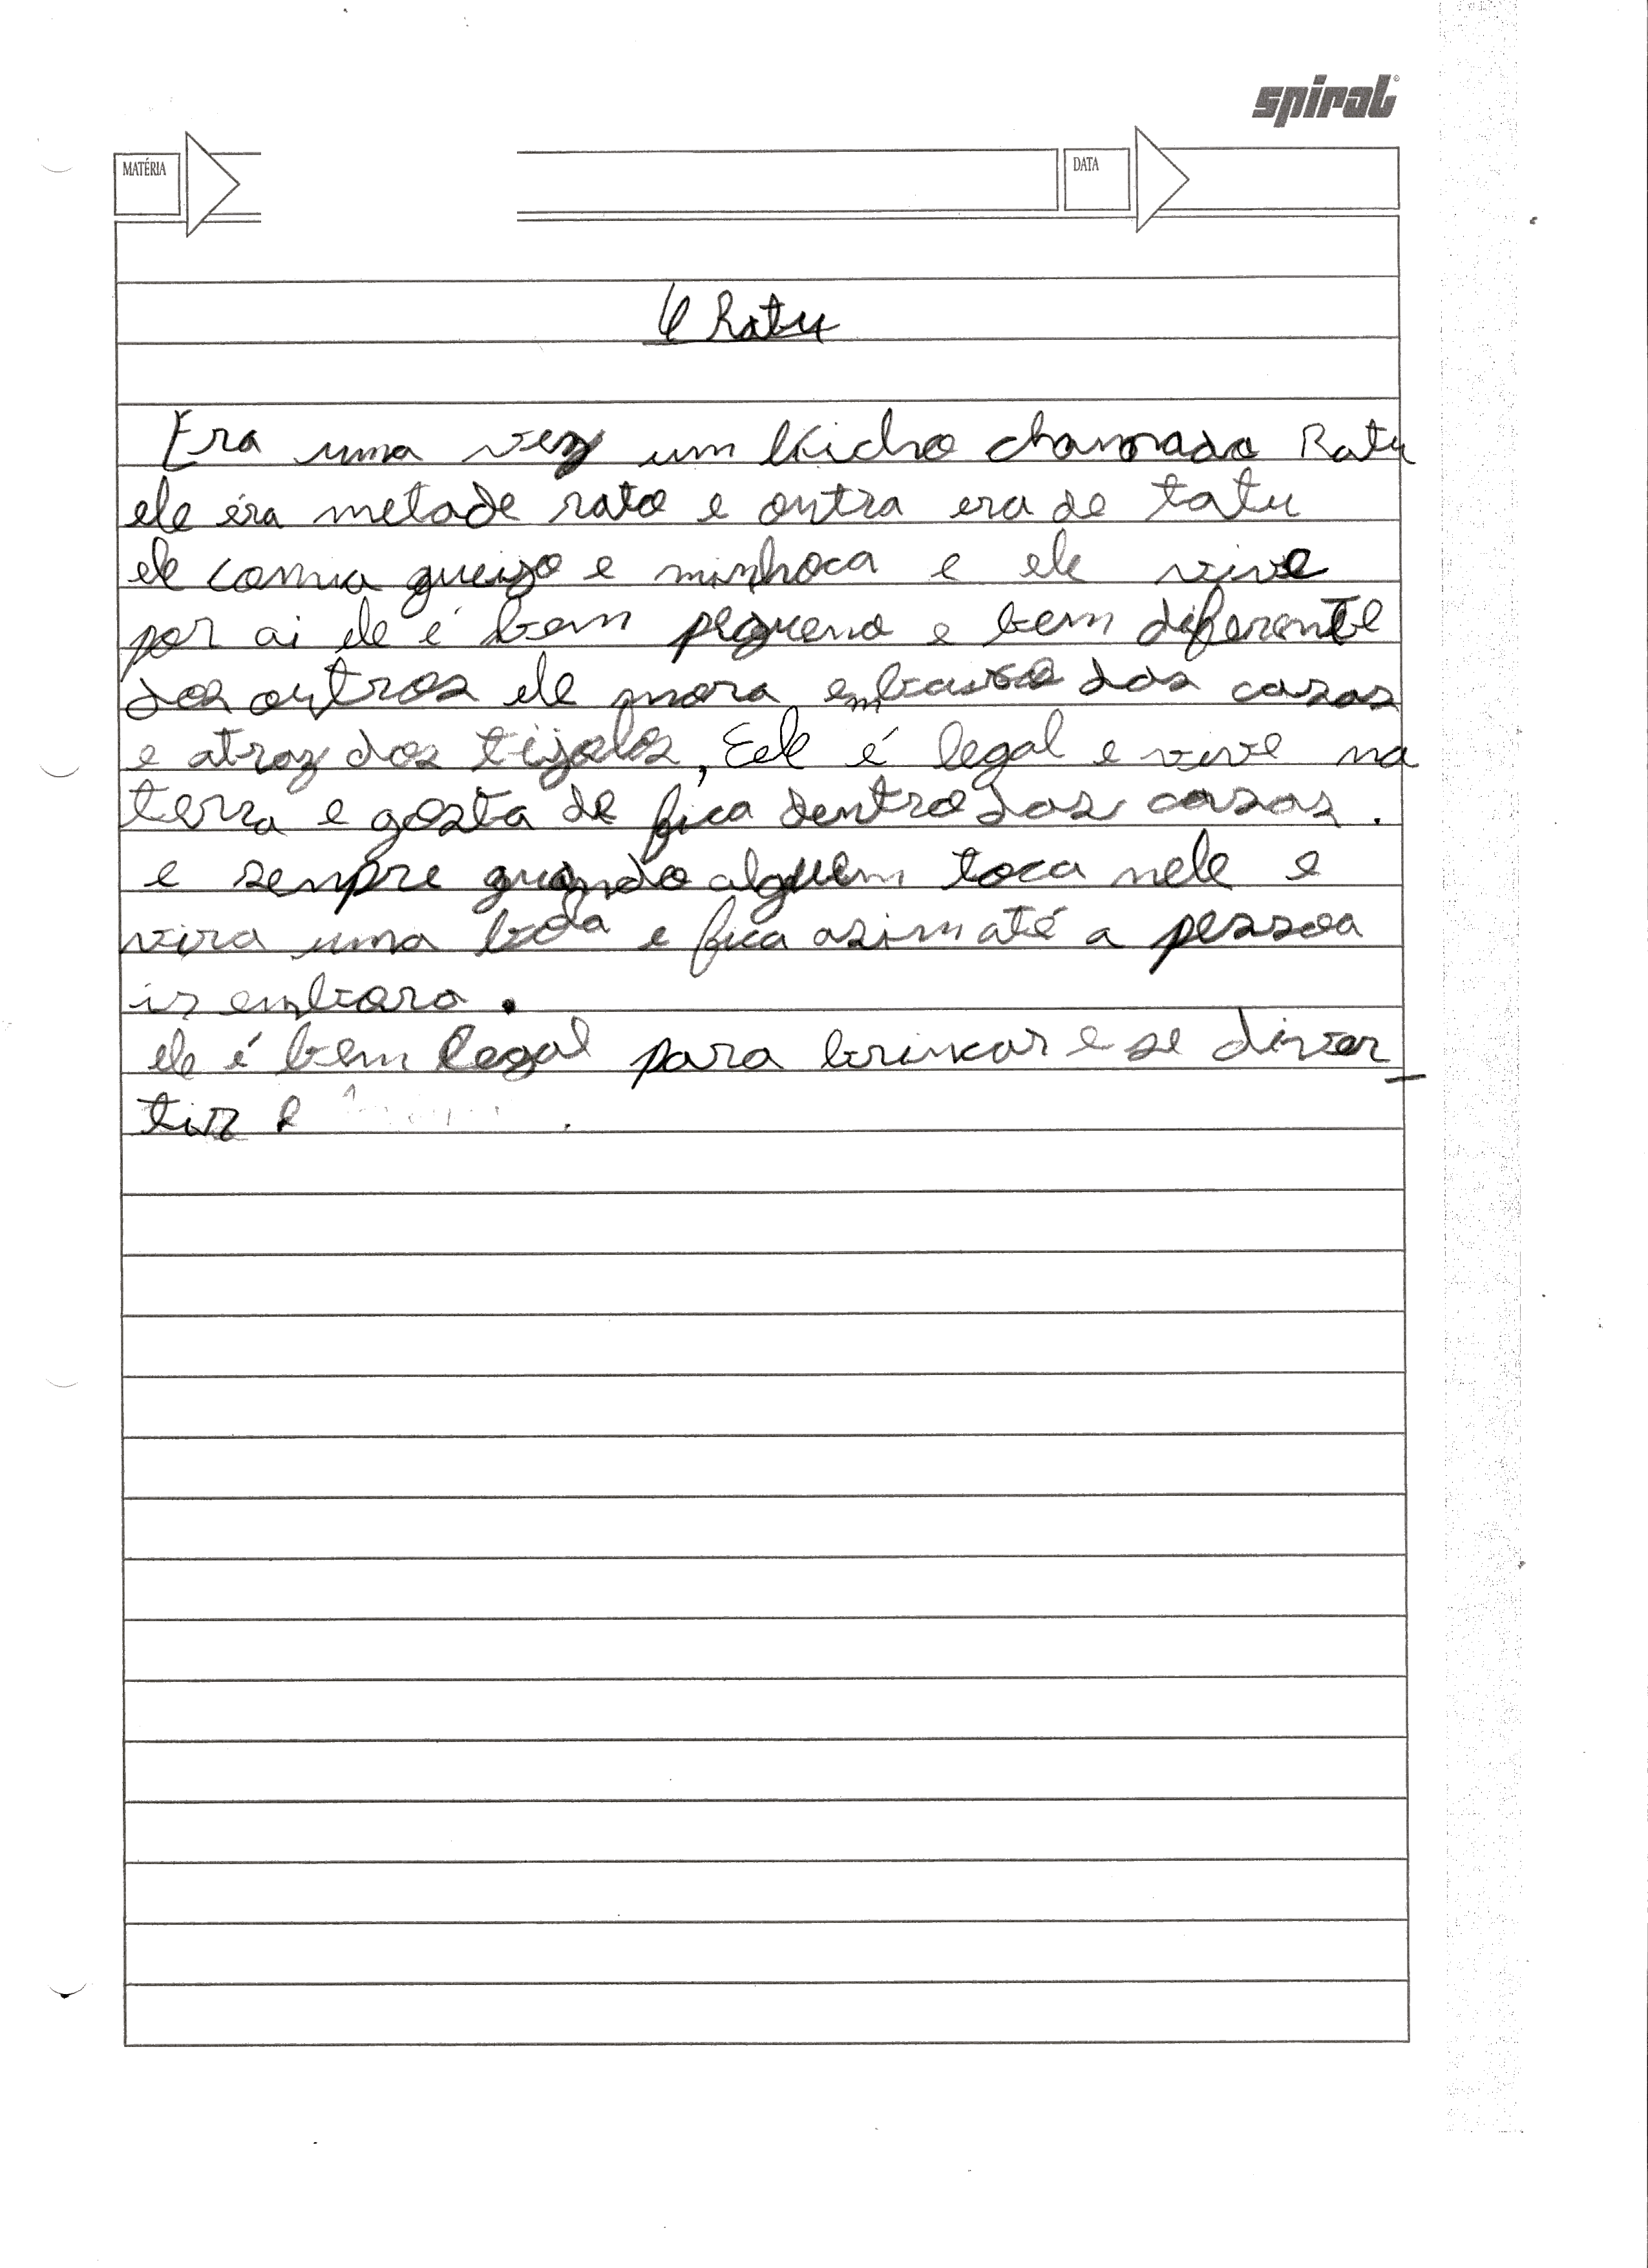 spiral
MATÉRIA
DATA
O Ratu
Era uma vez um bicho chamado Ratu
ele éra metade rato e outra era de tatu
ele comia queijo e minhoca e ele vive
por ai ele é bem pequeno e bem diferente
dos outros ele mora embaixo das casas
e atraz dos tijolos, Eele é legal e vive na
terra e gosta de fica dentro das casas.
e senpre quando alguem toca nele e
vira uma bola e fica asim até a pessoa
ir embora.
ele é bem legal para brincar e se diver-
tir e